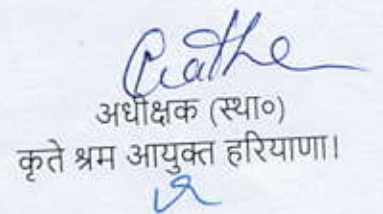 अधीक्षक (स्था०)
कृते श्रम आयुक्त हरियाणा।